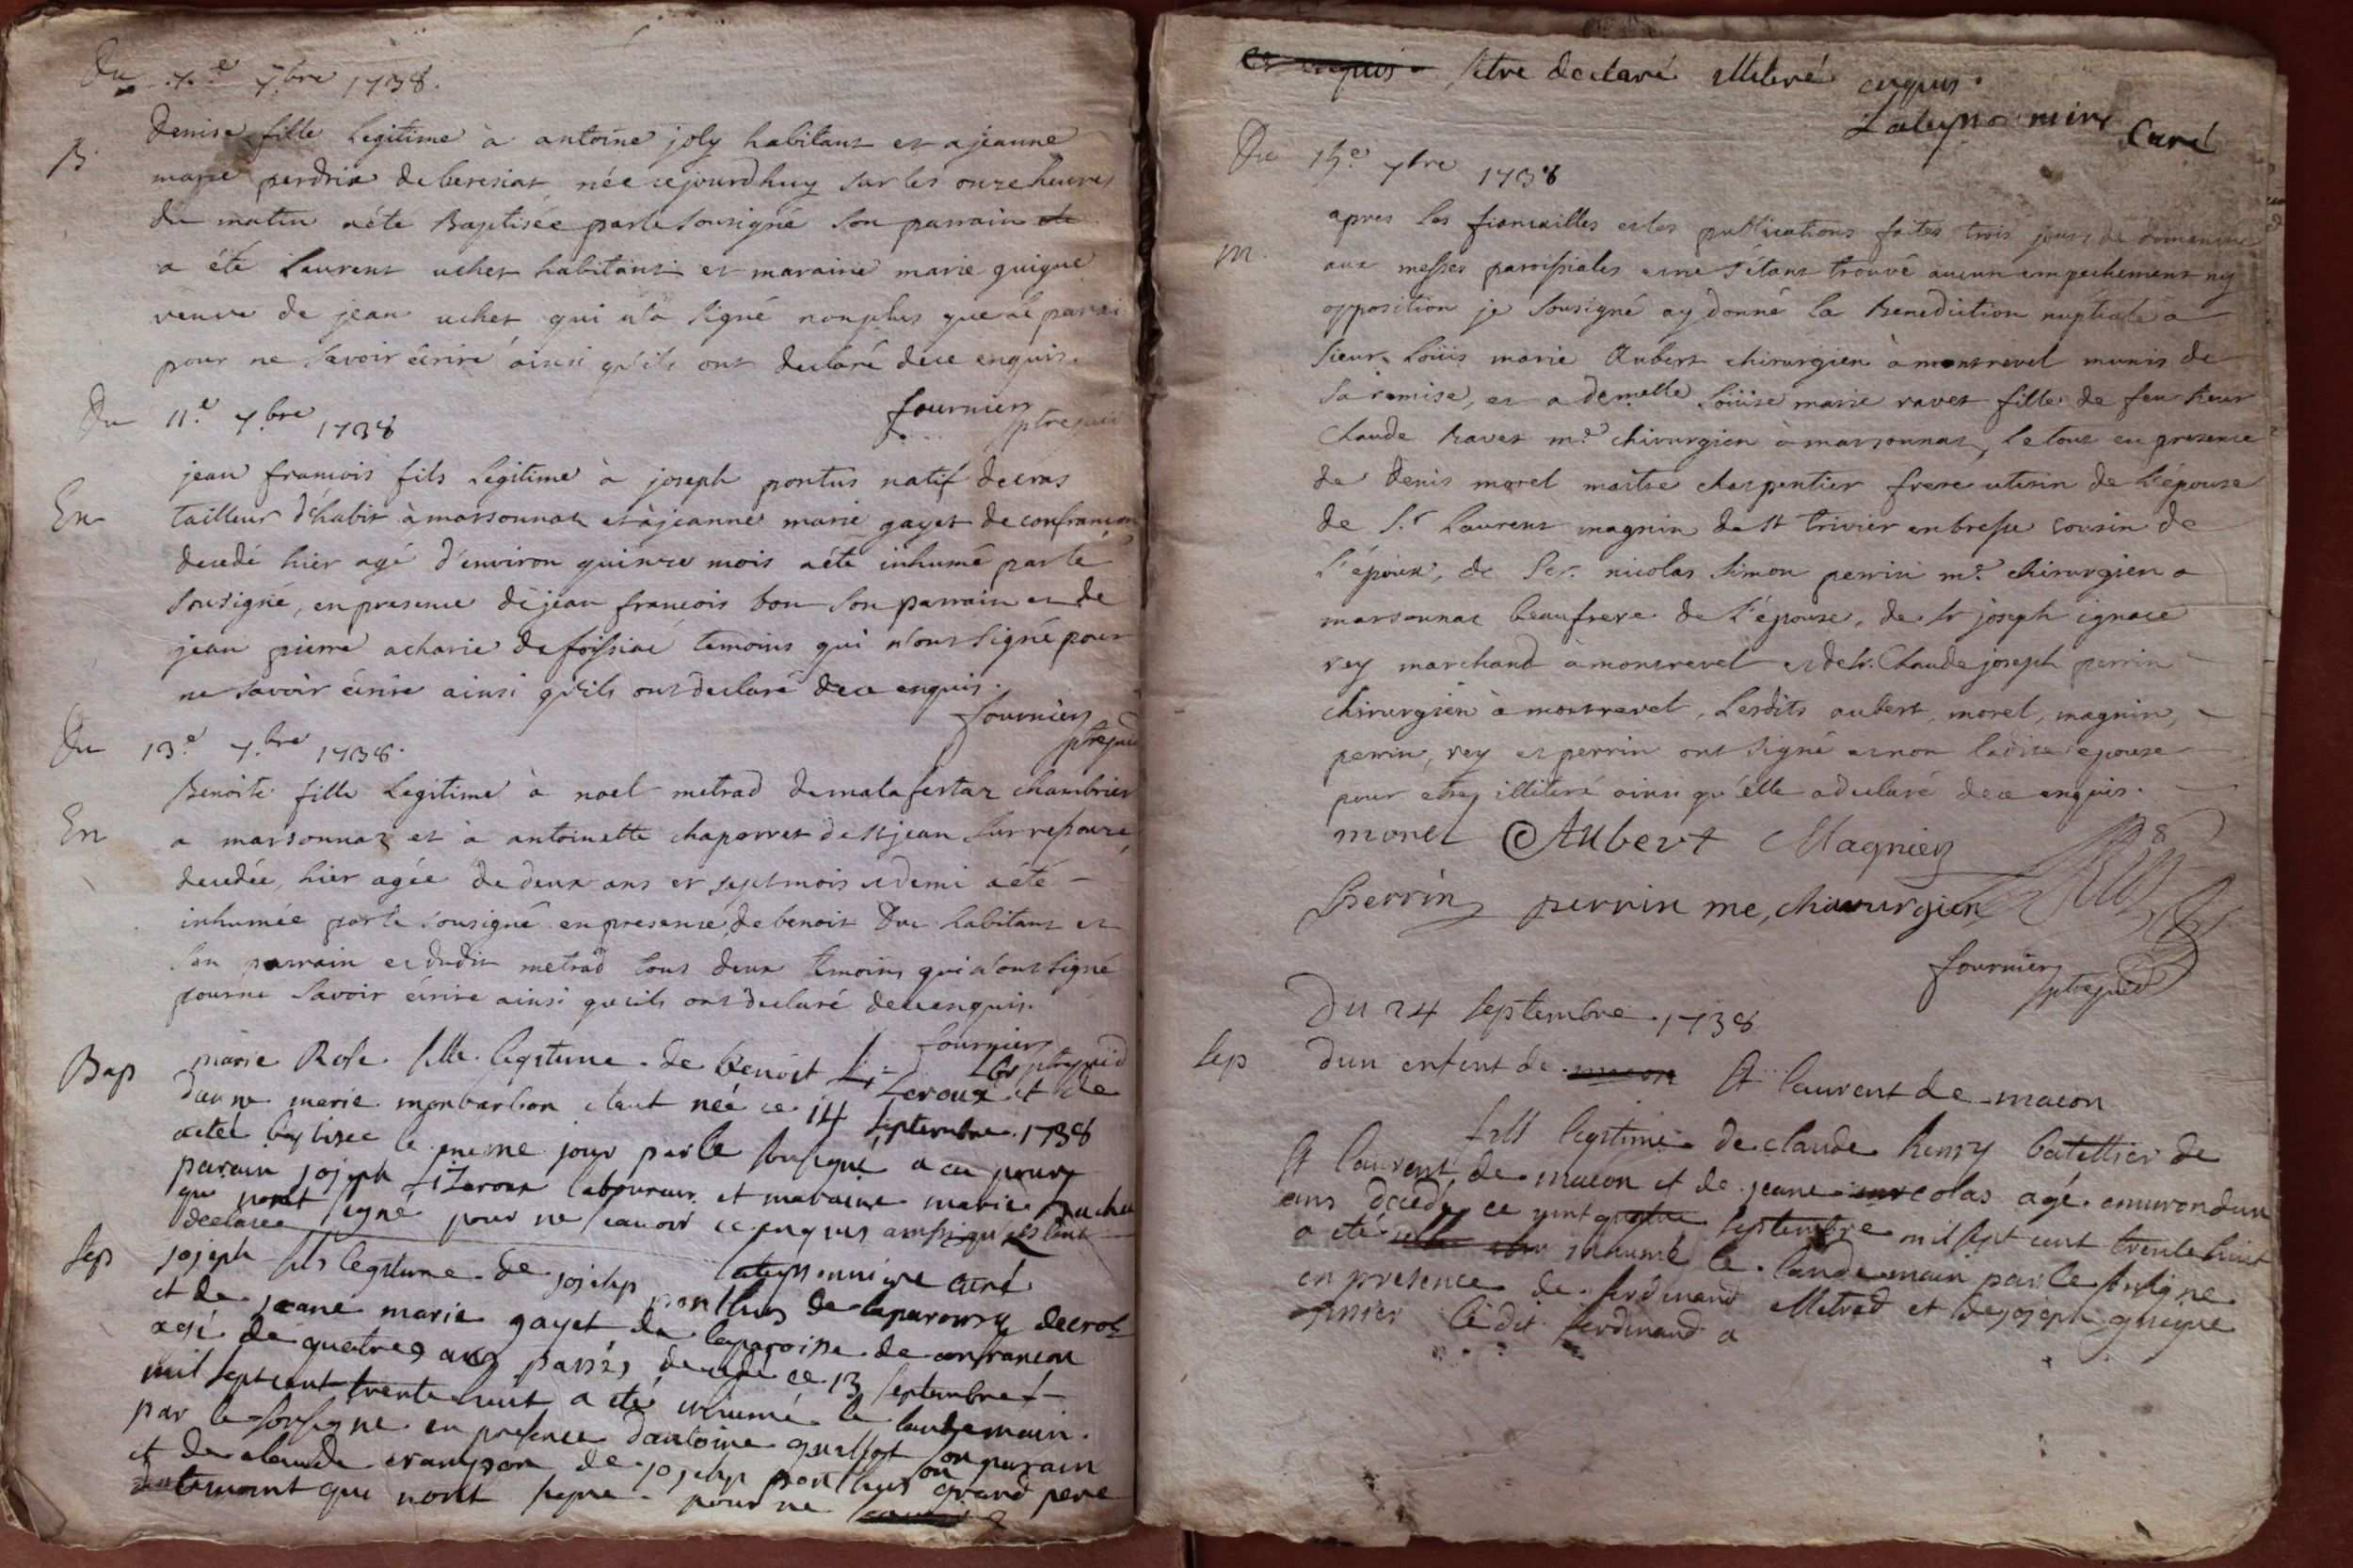 Du 7.e 7.bre 1738.
B. Denise fille Legitime à antoine joly habitant et a jeanne
marie perdrix de beresiat née cejourdhuy sur les onze heures
du matin a été Baptisée par le sousigné son parrain
a été Laurent uchet habitant et maraine marie guigue
veuve de jean uchet qui n'a signé nonplus que le parrai
pour ne savoir écrire ainsi qu'ils ont declaré de ce enquis.
fournier
Du 11.e 7.bre 1738
jean francois fils Legitime à joseph pontus natif de cras
En tailleur d'habit à marsonnaz et à jeanne marie gayet de confrancon
decedé hier agé d'environ quinze mois a été inhumé par le
sousigné, en presence de jean francois bon son parrain et de
jean pierre acharie de foissiac temoins qui n'ont signé pour
ne savoir écrire ainsi qu'ils ont declaré de ce enquis.
fournier
Du 13.e 7.bre 1738.
Benoite fille Legitime à noel metrad de malafertaz chambrier
En a marsonnaz et à antoinette chaparret de st jean sur resouze,
decedée, hier agée de deux ans et sept mois et demi a été
inhumée par le sousigné en presence de benoit Duc habitant et
son parrain et dudit metrad tous deux temoins qui n'ont signé
pour ne savoir écrire ainsi qu'ils ont declaré de ce enquis.
fournier
Bap marie Rose fille legitime de benoist
marie monbarbon née ce 14 septembre 1738
a eté baptisee le meme jour par le sousigné a eu pour
parain joseph laboureur et maraine marie
qui nont signé pour ne scavoir ce enquis ainsi qu'ils l'ont
declaree
curé
Sep joseph fils legitime de joseph ponthus de la paroisse de cras
et de jeane marie gayet de la paroisse de confrancon
agé de quatres ans passés decedé ce 13 septembre
mil sept cent trente huit a eté inhumé le landemain
par le sousigne en presence dantoine son parain
et de claude de joseph ponthus son grand pere
qui nont signe pour ne
et enquis setre declaré illiteré enquis.
Curé
Du 15.e 7bre 1738
apres les fiancailles et les publications faites trois jours de dimanche
m. aux messes paroissiales et ne s'étant trouvé aucun empechement ny
opposition je sousigné ay donné la Benediction nuptiale a
sieur Loüis marie Aubert chirurgien à montrevel munis de
sa remise, et a demelle Loüise marie ravet fille de feu sieur
Claude Ravet m.e chirurgien à marsonnaz, le tout en presence
de Denis morel maitre charpentier frere uterin de l'épouse
de S.r Laurent magnin de st trivier en bresse cousin de
l'époux, de Sr. nicolas simon perrin m.e chirurgien a
marsonnaz beaufrere de l'épouse, de sr joseph ignace
rey marchand à montrevel et de sr. Claude joseph perrin
chirurgien à montrevel, Lesdits aubert, morel, magnin,
perrin, rey et perrin ont signé et non ladite epouse
pour etre illiteré ainsi qu'elle a declaré de ce enquis.
morel Aubert Magnien
Perrin perrin me, chirurgien
fournier
Du 24 septembre 1738
Sep dun enfent de macon St laurent de macon
fils legitime de claude henry batellier de
St laurent de macon et de jeane colas agé emvirondun
ans decedé ce vint quatre septembre mil sept cent trente huit
a eté inhumé le landemain par le susigne
en presence de ferdinand Metrad et de joseph guigue
le dit ferdinand a